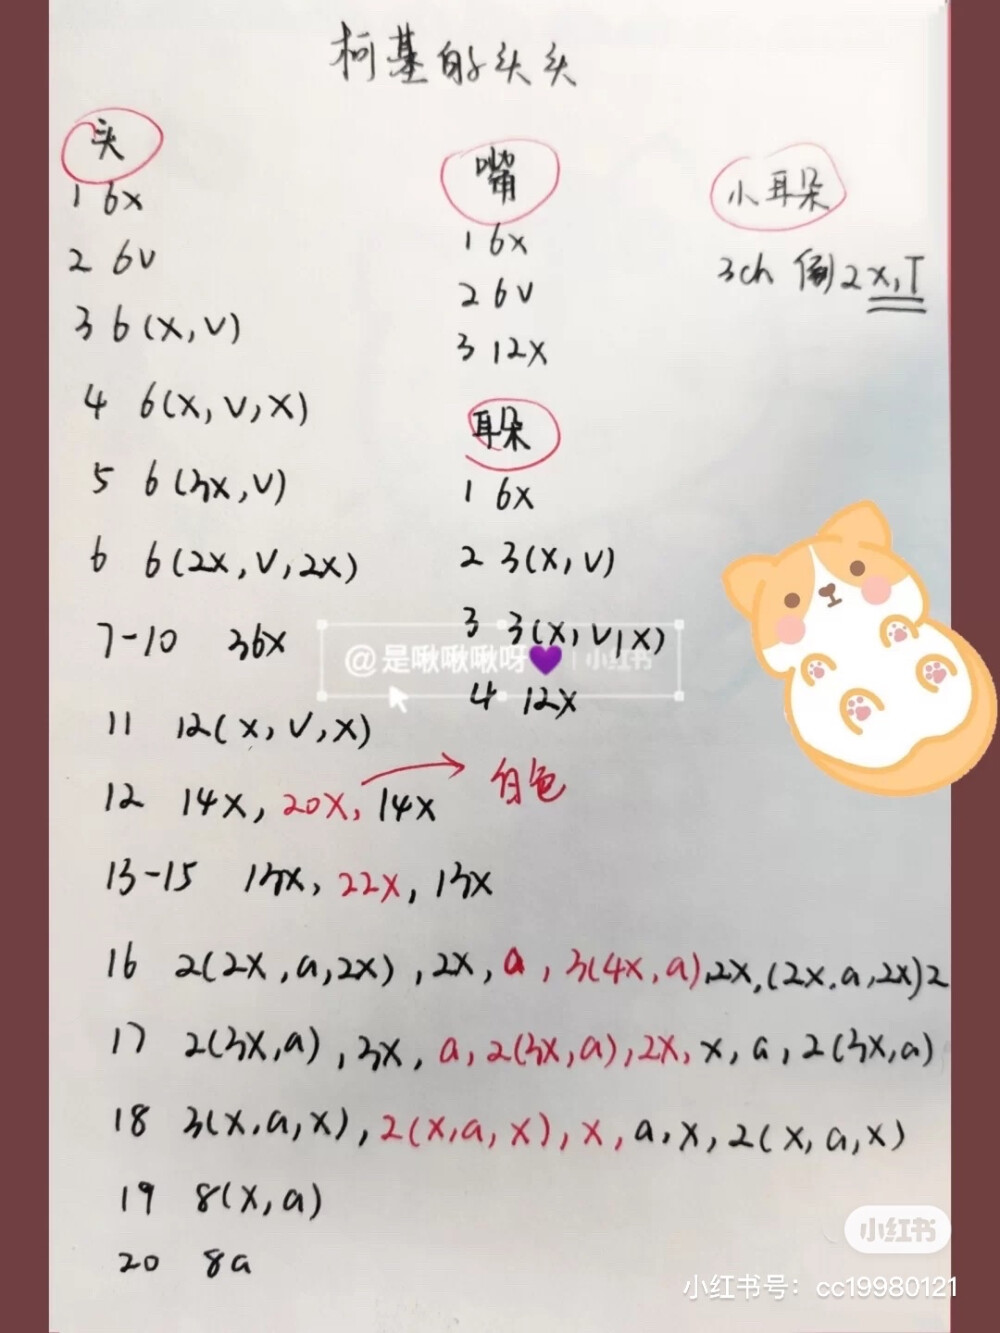 柯基的头头
头
1 6x
2 6v
3 6(x,v)
4 6(x,v,x)
5 6(3x,v)
6 6(2x,v,2x)
7-10 36x
11 12(x,v,x)
12 14x, 20x, 14x
白色
13-15 13x, 22x, 13x
16 2(2x,a,2x),2x,a,3(4x,a),2x,(2x,a,2x)2
17 2(3x,a),3x,a,2(3x,a),2x,x,a,2(3x,a)
18 3(x,a,x),2(x,a,x),x,a,x,2(x,a,x)
19 8(x,a)
20 8a
嘴
1 6x
2 6v
3 12x
耳朵
1 6x
2 3(x,v)
3 3(x,v,x)
4 12x
小耳朵
3ch 倒2x,T
@是啾啾啾呀💜 小红书
小红书
小红书号：cc19980121